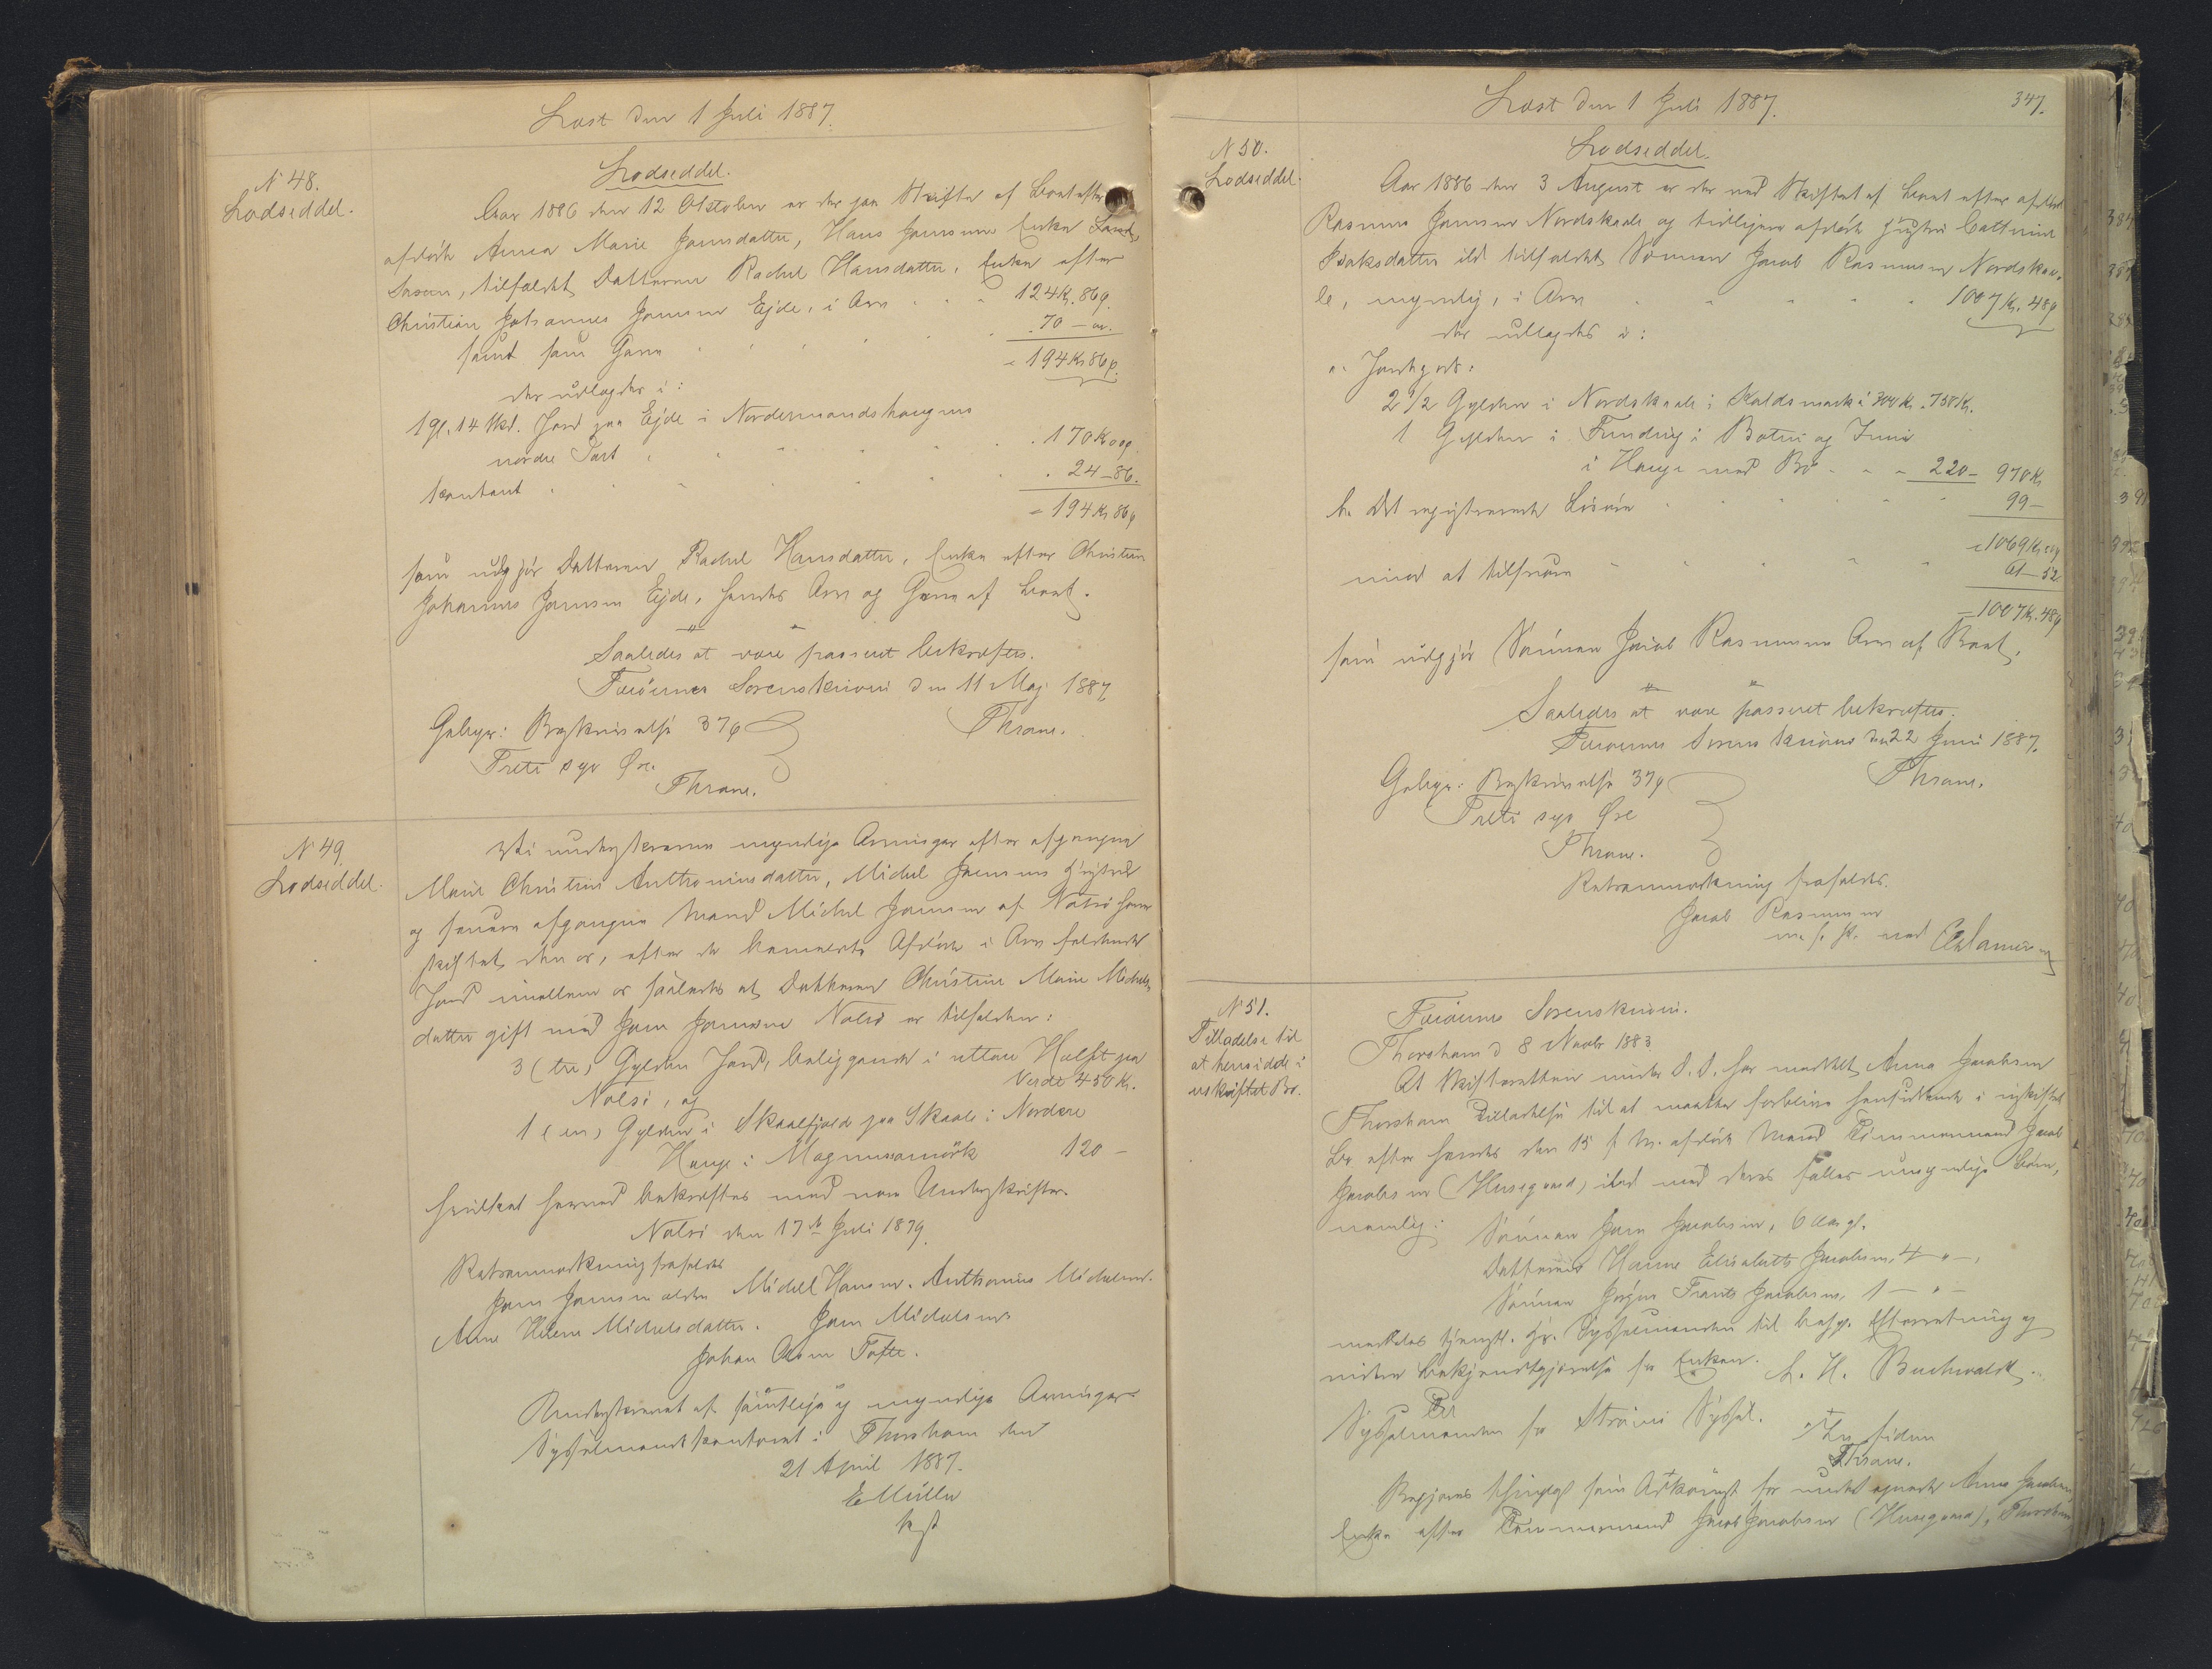 Læst den 1 Juli 1887.
N 48.
Lodseddel.
Lodseddel.
Aar 1886 den 12 Oktober er der paa Skifte af Boet efter
afdøde Anna Marie Joensdatter, Hans Joensens Enke Sands
tilfaldet Datteren Rachel Hansdatter, Enke efter
Christian Johannes Joensen Ejde, i Arv 124 K. 86 ø.
samt som Gave 70 –
= 194 Kr 86 ø.
der udlagdes i:
1 gl. 14 Skd. Jord paa Ejde i Nordermandshaugens
nordre Part 170 K 00 ø.
Kontant 24 – 86.
= 194 Kr 86 ø
som udgjør Datteren Rachel Hansdatter, Enke efter Christian
Johannes Joensen Ejde, hendes Arv og Gave af Boet.
Saaledes at være passeret bekræftes.
Færøernes Sorenskriveri den 11 Maj 1887
Thrane.
Gebyr: Beskrivelse 37 ø
Treti syv Øre
Thrane.
N 49.
Lodseddel.
Vi underskrevne myndige Arvinger efter afgangne
Marie Christine Anthoniusdatter, Michel Joensens Hustrue
og senere afgangne Mand Michel Joensen af Nolsø have
skiftet den os, efter de benævnte Afdøde i Arv faldende
Jord imellem os saaledes at Datteren Christine Marie Michels-
datter gift med Joen Joensen Nolsø er tilfalden:
3 (tre) Gylden Jord, beliggende i uttare Helft paa
Nolsø, og Verdi 450 K.
1 (en) Gylden i Skaalefjord paa Skaale i Nordere
Hauge i Magnussamörk 120 –
hvilket herved bekræftes med vore Underskrifter.
Nolsø den 17de Juli 1879.
Retsanmærkning frafaldes
Joen Joensen ældre Michel Hansen. Anthonius Michelsen.
Anne Helene Michelsdatter. Joen Michelsen
Johan Tofte.
Underskrevet af samtlige myndige Arvinger
Sysselmandskontoret i Thorshavn den
21 April 1887.
E Müller
kst
Læst den 1 Juli 1887. 347.
N 50.
Lodseddel.
Lodseddel.
Aar 1886 den 3 August er der ved Skiftet af Boet efter afdøde
Rasmus Joensen Nordskaale og tidligere afdøde Hustru Cathrine
Isaksdatter ibd tilfaldet Sønnen Jacob Rasmussen Nordskaa-
le, myndig, i Arv 1007 Kr. 48 ø
der udlagdes i:
a. Jordegods:
2 1/2 Gylden i Nordskaale i Kaldsmark à 300 Kr. 750 Kr.
1 Gylden i Funding i Botni og Inni
i Hauge med Bø 220 – 970 Kr
b. Det registrerede Løsøre 99 –
= 1069 Kr 00 ø
mod at tilsvare 61 – 52
= 1007 Kr. 48 ø
som udgjør Sønnen Jacob Rasmussens Arv af Boet.
Saaledes at være passeret bekræftes.
Færøernes Sorenskriveri den 22 Juni 1887.
Thrane.
Gebyr: Beskrivelse 37 ø
Treti syv Øre
Thrane.
Retsanmærkning frafaldes.
Jacob Rasmussen
m. f. P. ved
N 51.
Tilladelse til
at hensidde i
uskiftet Bo.
Færøernes Sorenskriveri.
Thorshavn d 8 Novbr 1883
At Skifteretten under D. D. har meddelt Anna Jacobsen
Thorshavn Tilladelse til at maatte forblive hensiddende i uskiftet
Bo efter hendes den 15 f. M. afdøde Mand Tømmermand Jacob
Jacobsen (Husegaard) ibd med deres fælles umyndige Børn,
nemlig: Sønnen Joen Jacobsen, 6 Aar gl.
Datteren Hanne Elisabeth Jacobsen, 4 – " –,
Sønnen Jørgen Frants Jacobsen, 1 – " –
meddeles tjenstl. Hr. Sysselmanden til behgl. Efterretning og
videre Bekjendtgjørelse for Enken.
L. H. Buchwaldt
Til
Sysselmanden for Strømø Syssel.
Vend Siden
Thrane.
Begjæres thinglyst som Adkomst for undertegnede Anna Jacobsen
Enke efter Tømmermand Jacob Jacobsen (Husegaard), Thorshavn